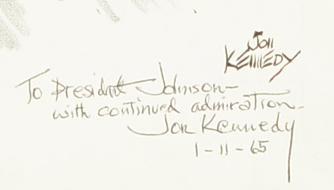 Jon
KENNEDY
To President Johnson-
with continued admiration-
Jon Kennedy
1-11-65